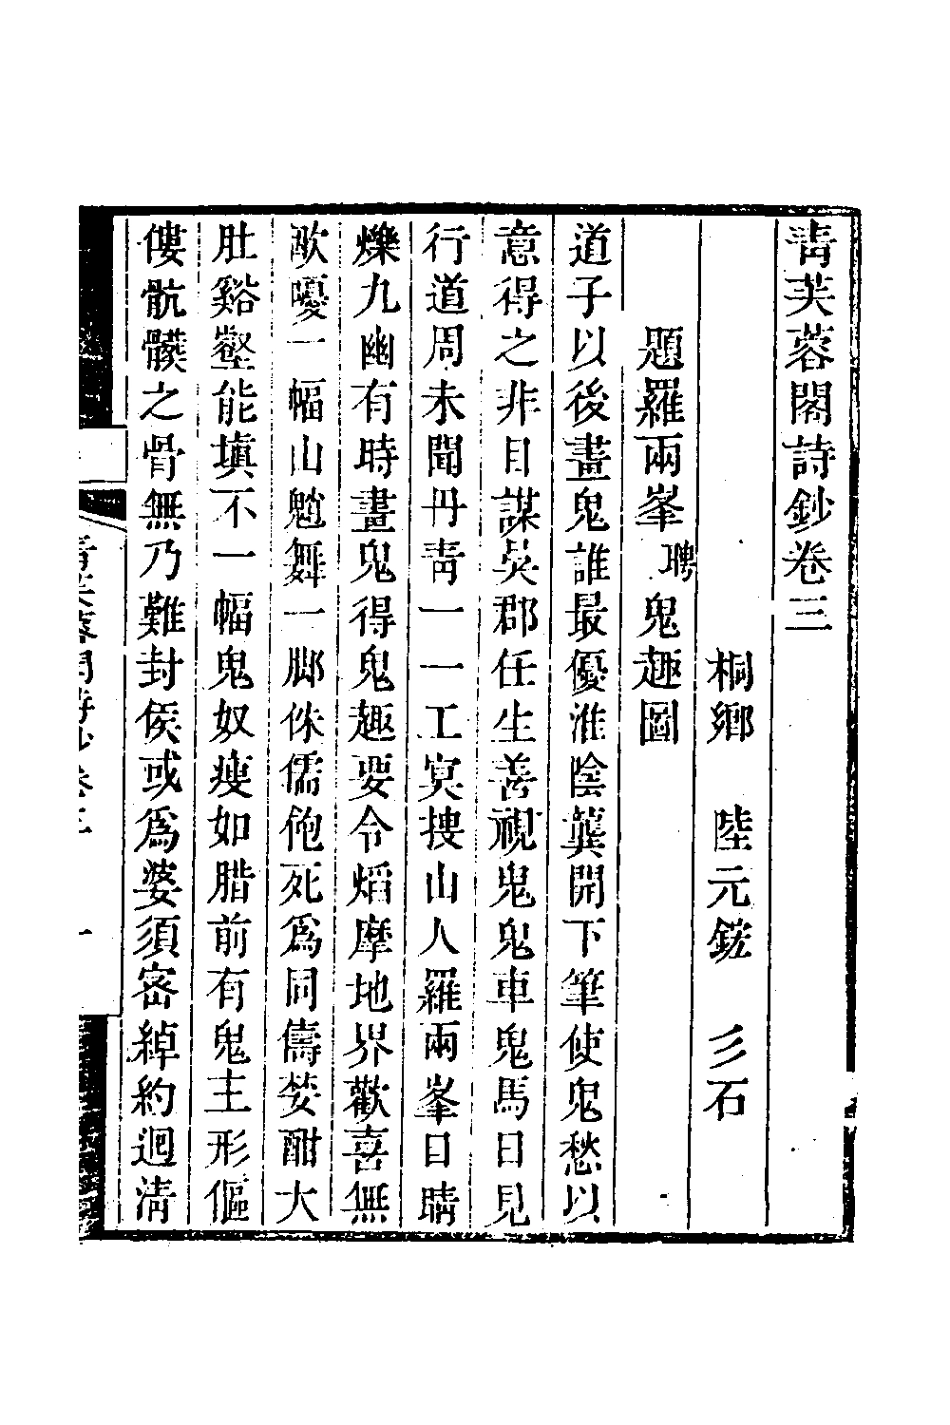 青芙蓉閣詩鈔卷三
桐鄉　陸元鋐　彡石
題羅兩峯聘鬼趣圖
道子以後畫鬼誰最優淮陰龔開下筆使鬼愁以
意得之非目謀吳郡任生善視鬼鬼車鬼馬日見
行道周未聞丹青一一工冥搜山人羅兩峯日睛
爍九幽有時畫鬼得鬼趣要令熖摩地界歡喜無
歇嚘一幅山魈舞一脚侏儒飽死爲同儔婪酣大
肚谿壑能填不一幅鬼奴瘦如腊前有鬼主形傴
僂骯髒之骨無乃難封侯或爲婆須密綽約迴淸
青芙蓉閣詩鈔卷三　一